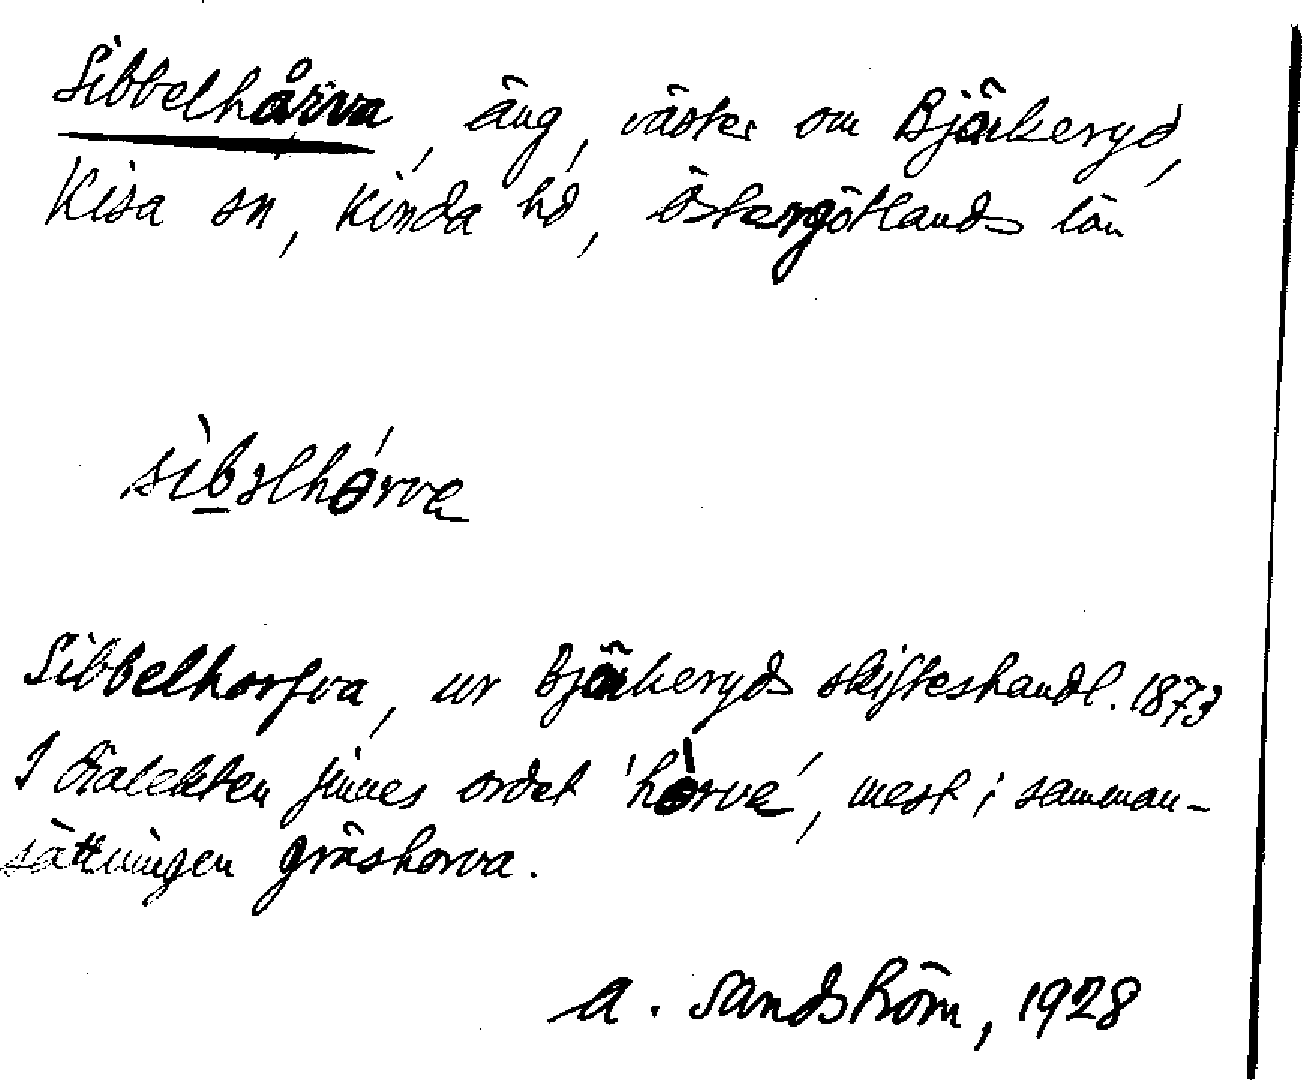 Sibbelhårva, äng, väster om Björkeryd,
Kisa sn, Kinda hd, Östergötlands län
sìbəlhórva
Sibbelhorfva, ur Björkeryds skifteshandl. 1873
I dialekten finnes ordet 'hòrva', mest i samman-
sättningen gräshorva.
A. Sandström, 1928